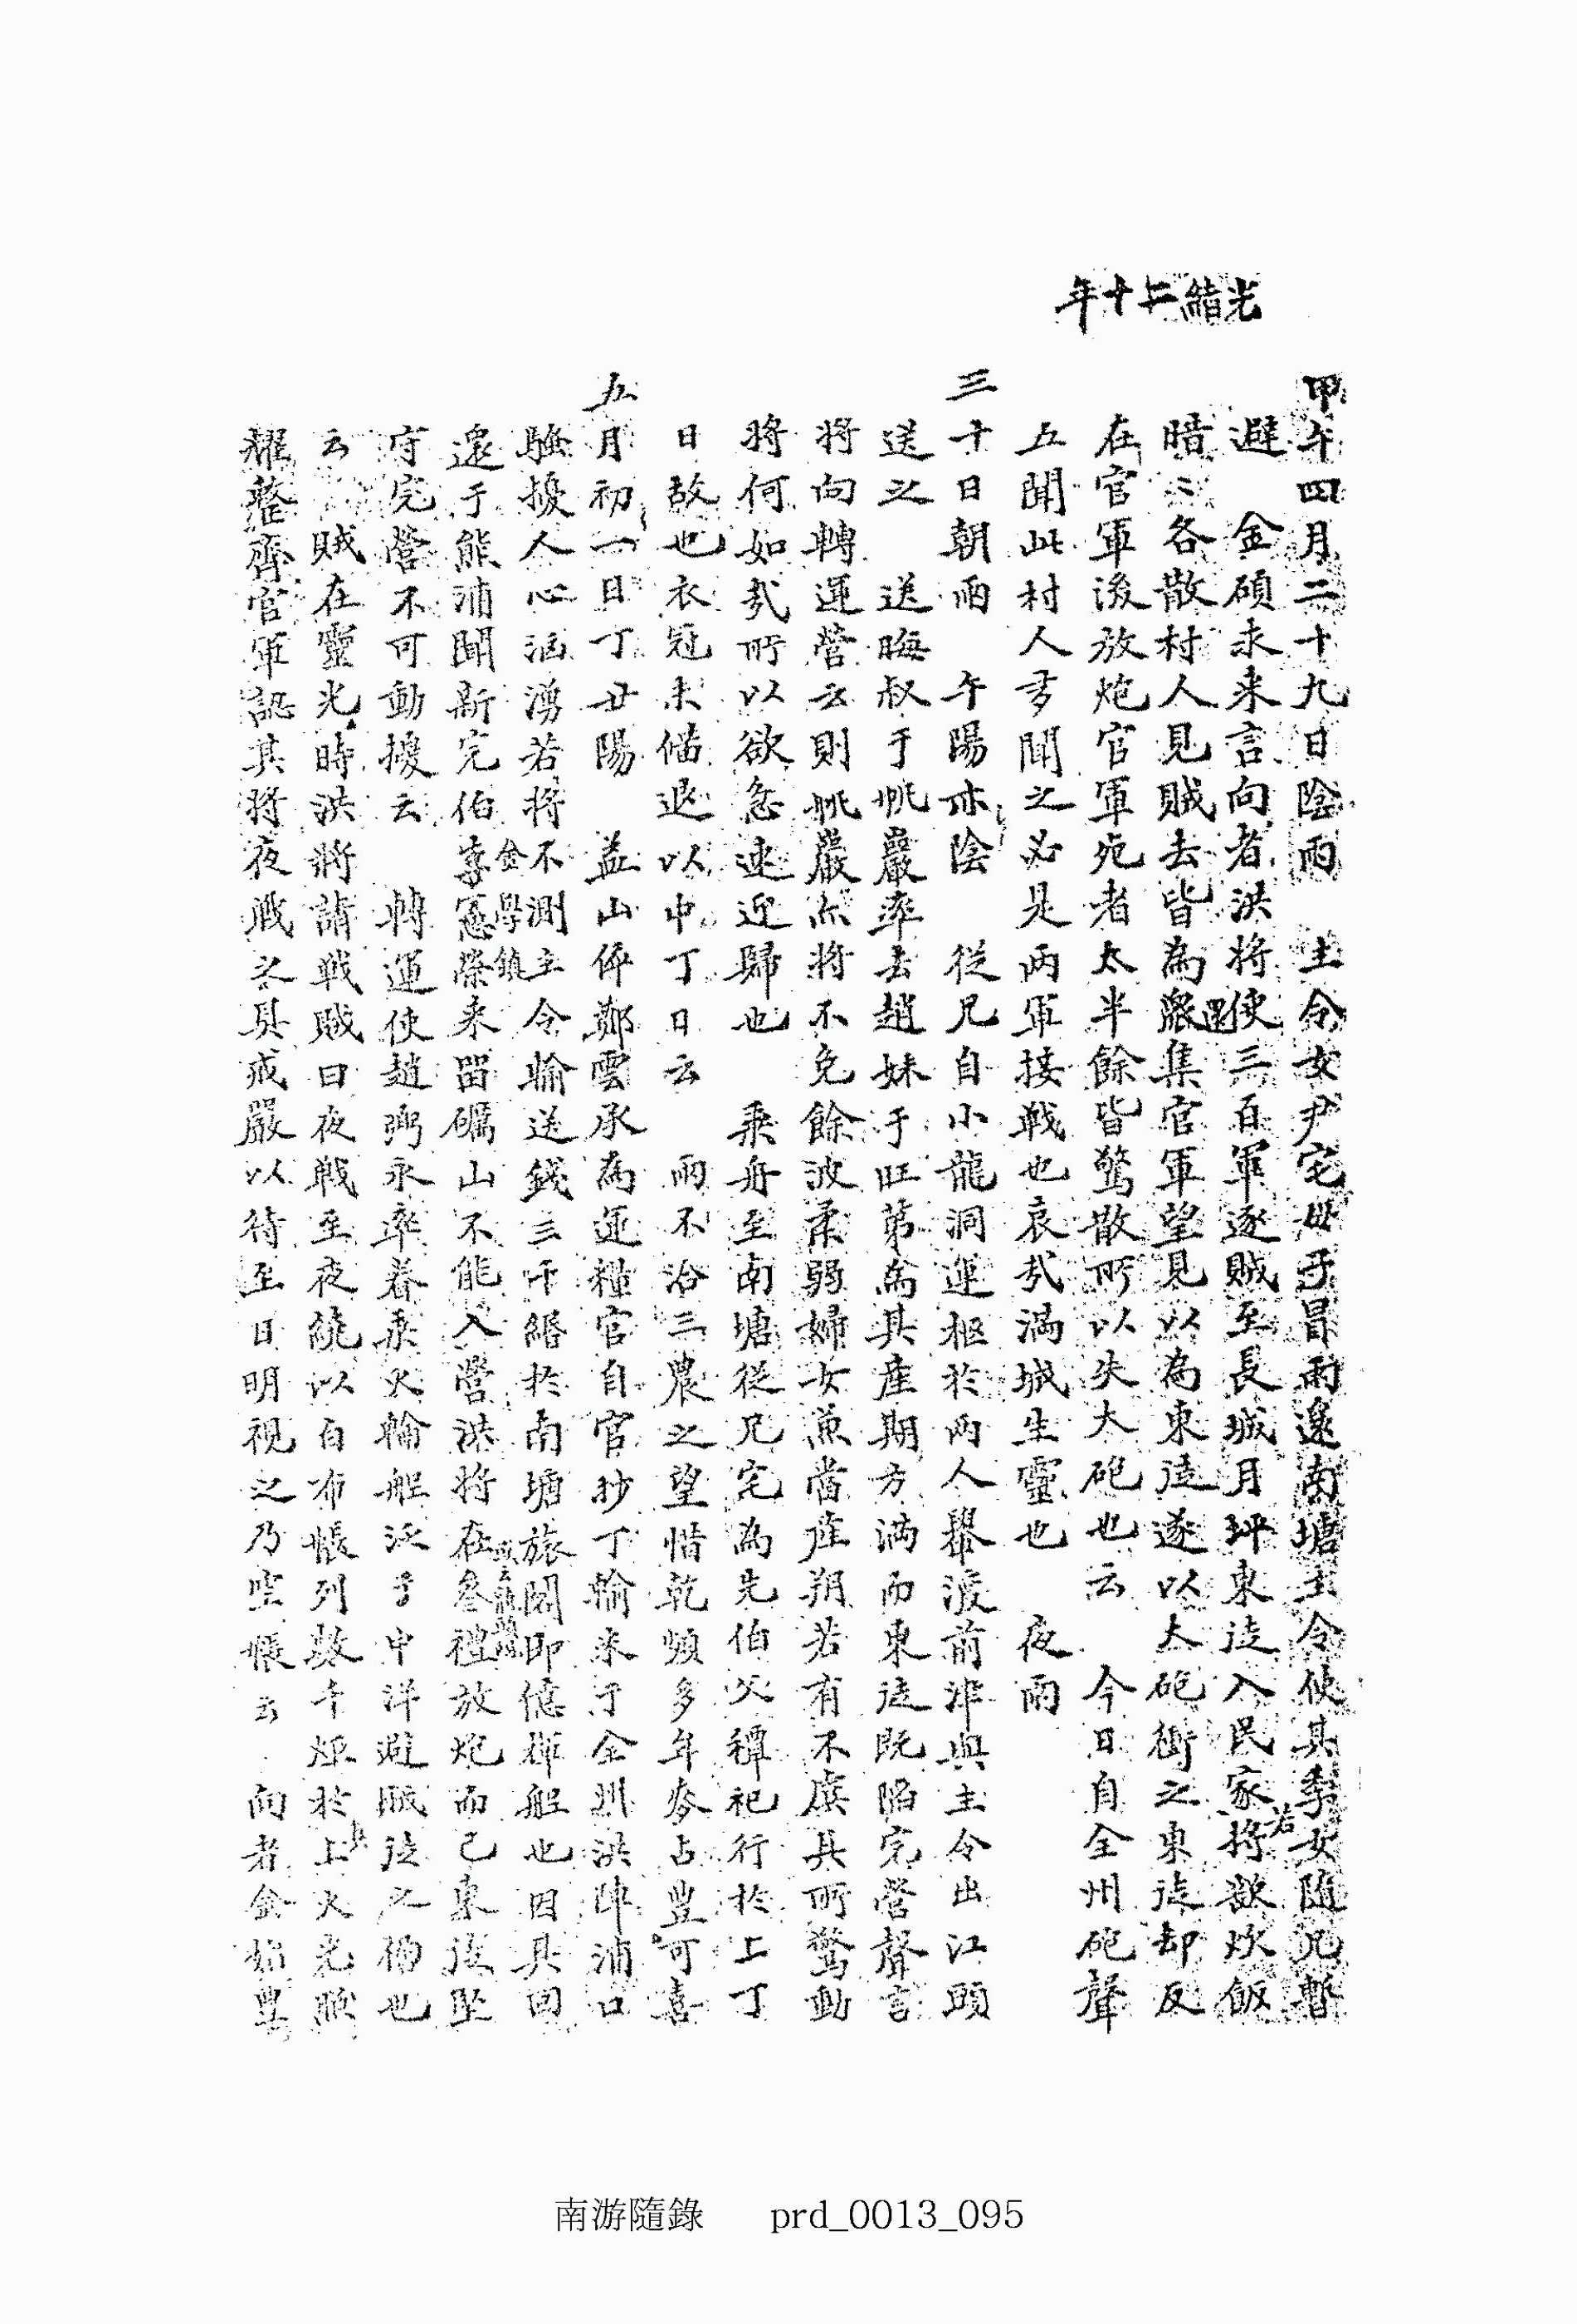 光緖二十年
甲午四月二十九日陰雨 主令女尹宅母子冒雨還南塘主令使其季女隨兄暫
避 金碩永來言向者洪將使三百軍逐賊至長城月坪東徒入民家將欲炊飯
暗〻各散村人見賊去皆為還聚集官軍望見以為東徒遂以大砲衝之東徒却反
在官軍後放炮官軍死者太半餘皆驚散所以失大砲也云 今日自全州砲聲
五聞此村人多聞之必是兩軍接戰也哀哉滿城生靈也 夜雨
三十日朝雨 午陽亦陰 從兄自小龍洞運柩於兩人轝渡前津與主令出江頭
送之 送晦叔于帆巖率去趙妹于旺第為其產期方滿而東徒既陷完營聲言
將向轉運營云則帆巖亦將不免餘波柔弱婦女兼當產朔若有不虞其所驚動
將何如哉所以欲急速迎歸也 乘舟至南塘從兄宅為先伯父禫祀行於上丁
日故也衣冠未備退以中丁日云 雨不洽三農之望惜乾頻多年麥占豊可喜
五月初一日丁丑陽 益山倅鄭雲承為運糧官自官抄丁輸米于全州洪陣浦口
騷擾人心洶湧若將不測 主令輸送錢三千緡於南塘旅閣即億禪船也因其回
金學鎮
還于熊浦聞新完伯李憲榮來留礪山不能入營洪將在參禮放炮而已東徒墜
府完營不可動擾云 轉運使趙弼永率眷乘火輪船泛于中洋避賊徒之禍也
云 賊在靈光時洪將請戰賊曰夜戰至夜繞以白布帳列數千炬於上火光照
耀整齊官軍認其將夜戰之具戒嚴以待至日明視之乃空帳云 向者金始豊